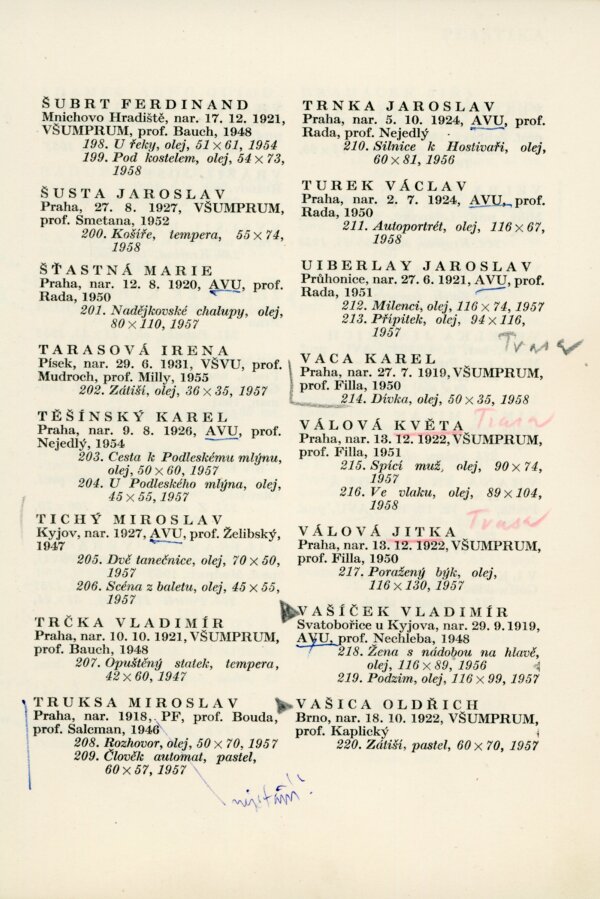 ŠUBRT FERDINAND
Mnichovo Hradiště, nar. 17. 12. 1921,
VŠUMPRUM, prof. Bauch, 1948
198. U řeky, olej, 51 × 61, 1954
199. Pod kostelem, olej, 54 × 73,
1958
ŠUSTA JAROSLAV
Praha, 27. 8. 1927, VŠUMPRUM,
prof. Smetana, 1952
200. Košíře, tempera, 55 × 74,
1958
ŠŤASTNÁ MARIE
Praha, nar. 12. 8. 1920, AVU, prof.
Rada, 1950
201. Nadějkovské chalupy, olej,
80 × 110, 1957
TARASOVÁ IRENA
Písek, nar. 29. 6. 1931, VŠVU, prof.
Mudroch, prof. Milly, 1955
202. Zátiší, olej, 36 × 35, 1957
TĚŠÍNSKÝ KAREL
Praha, nar. 9. 8. 1926, AVU, prof.
Nejedlý, 1954
203. Cesta k Podleskému mlýnu,
olej, 50 × 60, 1957
204. U Podleského mlýna, olej,
45 × 55, 1957
TICHÝ MIROSLAV
Kyjov, nar. 1927, AVU, prof. Želibský,
1947
205. Dvě tanečnice, olej, 70 × 50,
1957
206. Scéna z baletu, olej, 45 × 55,
1957
TRČKA VLADIMÍR
Praha, nar. 10. 10. 1921, VŠUMPRUM,
prof. Bauch, 1948
207. Opuštěný statek, tempera,
42 × 60, 1947
TRUKSA MIROSLAV
Praha, nar. 1918, PF, prof. Bouda,
prof. Salcman, 1946
208. Rozhovor, olej, 50 × 70, 1957
209. Člověk automat, pastel,
60 × 57, 1957
nejstarší!
TRNKA JAROSLAV
Praha, nar. 5. 10. 1924, AVU, prof.
Rada, prof. Nejedlý
210. Silnice k Hostivaři, olej,
60 × 81, 1956
TUREK VÁCLAV
Praha, nar. 2. 7. 1924, AVU, prof.
Rada, 1950
211. Autoportrét, olej, 116 × 67,
1958
UIBERLAY JAROSLAV
Průhonice, nar. 27. 6. 1921, AVU, prof.
Rada, 1951
212. Milenci, olej, 116 × 74, 1957
213. Přípitek, olej, 94 × 116,
1957
Trasa
VACA KAREL
Praha, nar. 27. 7. 1919, VŠUMPRUM,
prof. Filla, 1950
214. Dívka, olej, 50 × 35, 1958
VÁLOVÁ KVĚTA Trasa
Praha, nar. 13. 12. 1922, VŠUMPRUM,
prof. Filla, 1951
215. Spící muž, olej, 90 × 74,
1957
216. Ve vlaku, olej, 89 × 104,
1958
Trasa
VÁLOVÁ JITKA
Praha, nar. 13. 12. 1922, VŠUMPRUM,
prof. Filla, 1950
217. Poražený býk, olej,
116 × 130, 1957
VAŠÍČEK VLADIMÍR
Svatobořice u Kyjova, nar. 29. 9. 1919,
AVU, prof. Nechleba, 1948
218. Žena s nádobou na hlavě,
olej, 116 × 89, 1956
219. Podzim, olej, 116 × 99, 1957
VAŠICA OLDŘICH
Brno, nar. 18. 10. 1922, VŠUMPRUM,
prof. Kaplický
220. Zátiší, pastel, 60 × 70, 1957